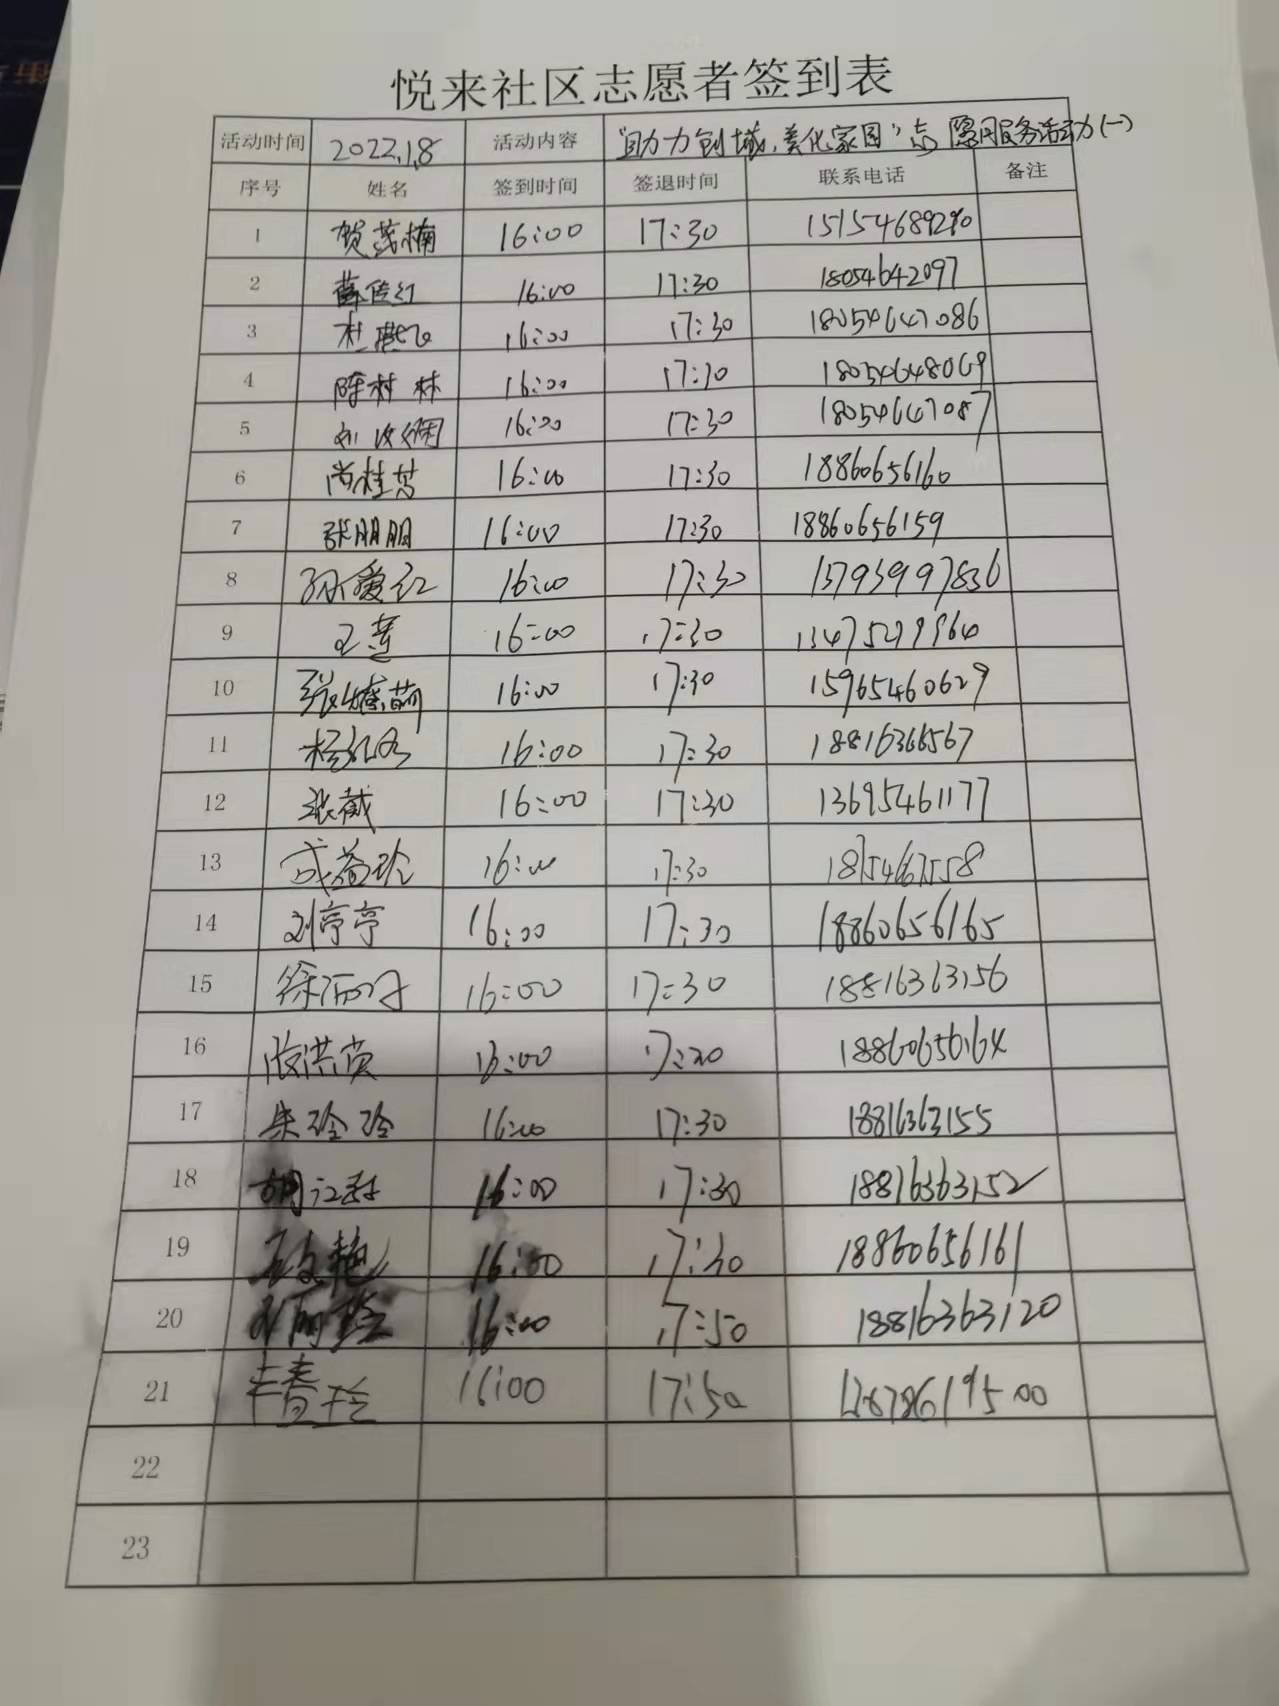 悦来社区志愿者签到表
活动时间 2022.1.8 活动内容 "助力创城,美化家园"志愿服务活动(一)
序号 姓名 签到时间 签退时间 联系电话 备注
1 贺茂楠 16:00 17:30 15154689290
2 薛传红 16:00 17:30 18054642097
3 杜燕飞 16:00 17:30 18054647086
4 陈村林 16:00 17:30 18054648069
5 刘 16:00 17:30 18054647087
6 尚桂芬 16:00 17:30 18860656160
7 张朋朋 16:00 17:30 18860656159
8 孙爱红 16:00 17:30 13793997836
9 王莲 16:00 17:30
10 张 16:00 17:30 15965460629
11 杨 16:00 17:30 18816366567
12 张薇 16:00 17:30 13695461177
13 成益玲 16:00 17:30
14 刘亭亭 16:00 17:30 18860656165
15 徐 16:00 17:30 18816363156
16 16:00 17:30 18860656164
17 朱玲玲 16:00 17:30 18816363155
18 胡 16:00 17:30 18816363152
19 16:00 17:30 18860656161
20 16:00 17:50 18816363120
21 16:00 17:50
22
23